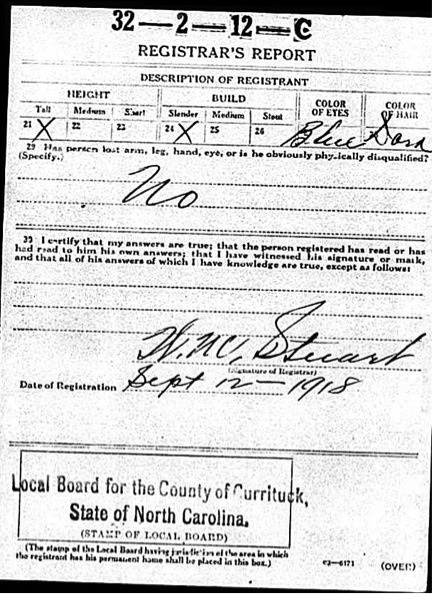 32—2—12—C
REGISTRAR'S REPORT
DESCRIPTION OF REGISTRANT
HEIGHT BUILD COLOR OF EYES COLOR OF HAIR
Tall Medium Short Slender Medium Stout
21 X 22 23 24 X 25 26 Blue Dark
29 Has person lost arm, leg, hand, eye, or is he obviously physically disqualified?
(Specify.)
No
30 I certify that my answers are true; that the person registered has read or has
had read to him his own answers; that I have witnessed his signature or mark,
and that all of his answers of which I have knowledge are true, except as follows:
Stuart
(Signature of Registrar)
Date of Registration Sept 12—1918
Local Board for the County of Currituck,
State of North Carolina.
(STAMP OF LOCAL BOARD)
(The stamp of the Local Board having jurisdiction of the area in which
the registrant has his permanent home shall be placed in this box.)
c3—6171 (OVER)